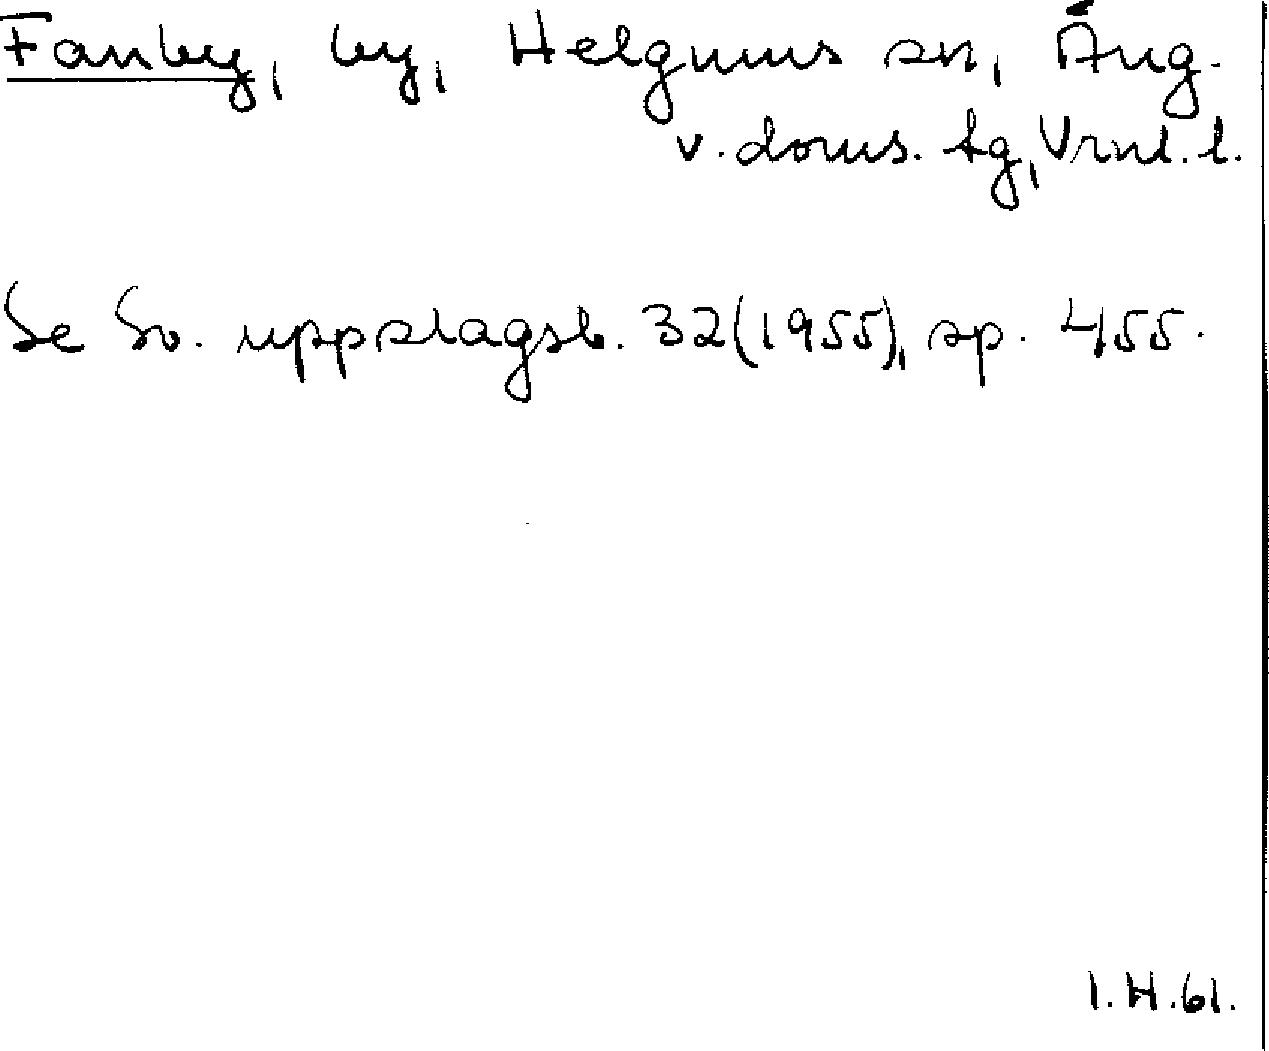 Fanby, by, Helgums sn, Ång.
v. doms. tg, Vrnl. l.
Se Sv. uppslagsb. 32(1955), sp. 455.
I.H.61.